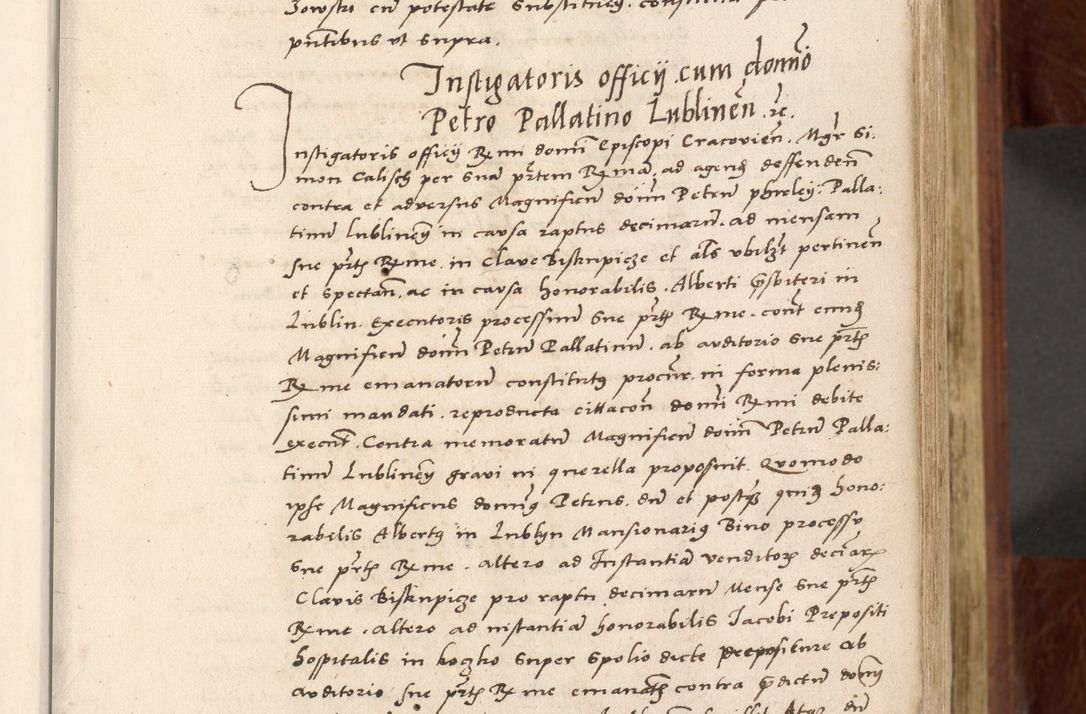 pntibus ut supra.
Instigatoris officij cum domno
Petro Pallatino Lublinen. rc.
Instigatoris officij Rmi domi Episcopi Cracovien. Mgr Si:
mon Calisch per sua prtem Rma. ad agend deffenden
contra et adversus Magnificu doim Petru phirley: Palla:
tinu lublinen in causa raptus decimaru. ad mensam
sue prtis Rme. in Clave Biskupicze et als ubilzt pertinen
et spectan. ac in causa honorabilis. Alberti psbiteri in
Lublin. Executoris processuu sue prtis Rme. cont eund
Magnificu doim Petru Pallatinu. ab auditorio sue prtis
Rme emanatoru constitutus procur. in forma plenis:
simi mandati. reproducta cittacon domi Rmi debite
execut. Contra memoratu Magnificu doim Petru Palla:
tinu Lublinen gravi in querella proposuit. Quomodo
ipse Magnificus domnus Petrus. du et postq quid hono:
rabilis Albertus in Lublyn Mansionarius Bino processu
sue prtis Rme. altero ad Instantia venditoru deciaru
Clavis Biskupicze pro raptu decimaru Mense sue prtis
Rme. altero ad instantia honorabilis Jacobi Prepositi
hospitalis in koczko super spolio dicte prepositure ab
auditorio sue prtis Rme emanatis contra pdictu domnu